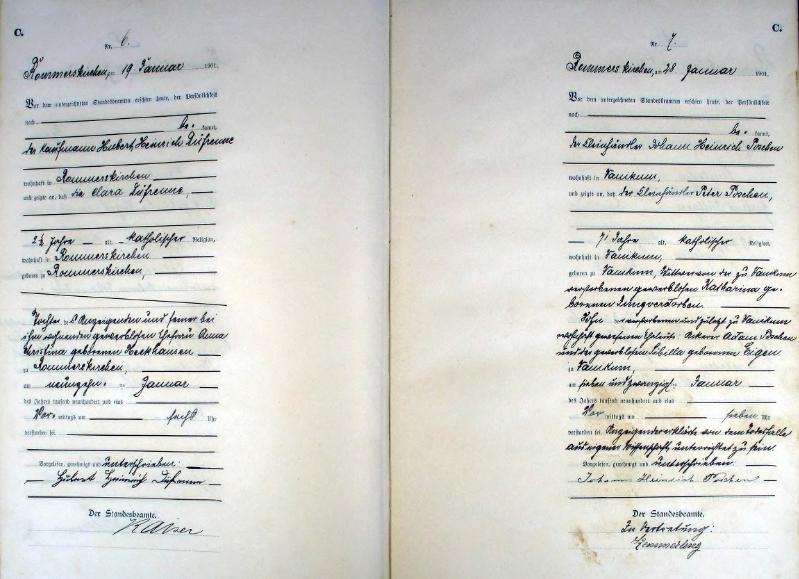 C.
Nr. 6.
Rommerskirchen, am 19. Januar 1901.
Vor dem unterzeichneten Standesbeamten erschien heute, der Persönlichkeit
nach
be kannt,
der Kaufmann Hubert Heinrich Düfrenne
wohnhaft in Rommerskirchen
und zeigte an, daß die Clara Düfrenne,
2½ Jahre alt, katholischer Religion,
wohnhaft in Rommerskirchen
geboren zu Rommerskirchen,
Tochter des Anzeigenden und seiner bei
ihm wohnenden gewerblosen Ehefrau Anna
Christina geborenen Heckhausen
zu Rommerskirchen,
am neunzehn ten Januar
des Jahres tausend neunhundert und eins
Vor mittags um sechs Uhr
verstorben sei.
Vorgelesen, genehmigt und unterschrieben:
Hubert Heinrich Düfrenne
Der Standesbeamte.
Kaiser
C.
Nr. 7.
Rommerskirchen, am 28. Januar 1901.
Vor dem unterzeichneten Standesbeamten erschien heute, der Persönlichkeit
nach
be kannt,
der Kleinhändler Johann Heinrich Poschen
wohnhaft in Vanikum,
und zeigte an, daß der Kleinhändler Peter Poschen,
71 Jahre alt, katholischer Religion,
wohnhaft in Vanikum,
geboren zu Vanikum, Wittwer von der zu Vanikum
verstorbenen gewerblosen Katharina ge-
borenen
Sohn der verstorbenen und zuletzt zu Vanikum
wohnhaft gewesenen Eheleute: Ackerer Adam Poschen
und der gewerblosen Sibilla geborenen Eugen
zu Vanikum,
am sieben und zwanzigsten Januar
des Jahres tausend neunhundert und eins
Vor mittags um sieben Uhr
verstorben sei. Anzeigender erklärte von dem Sterbefalle
aus eigener Wissenschaft unterrichtet zu sein.
Vorgelesen, genehmigt und unterschrieben
Johann Heinrich Poschen
Der Standesbeamte.
In Vertretung:
Hemmerling